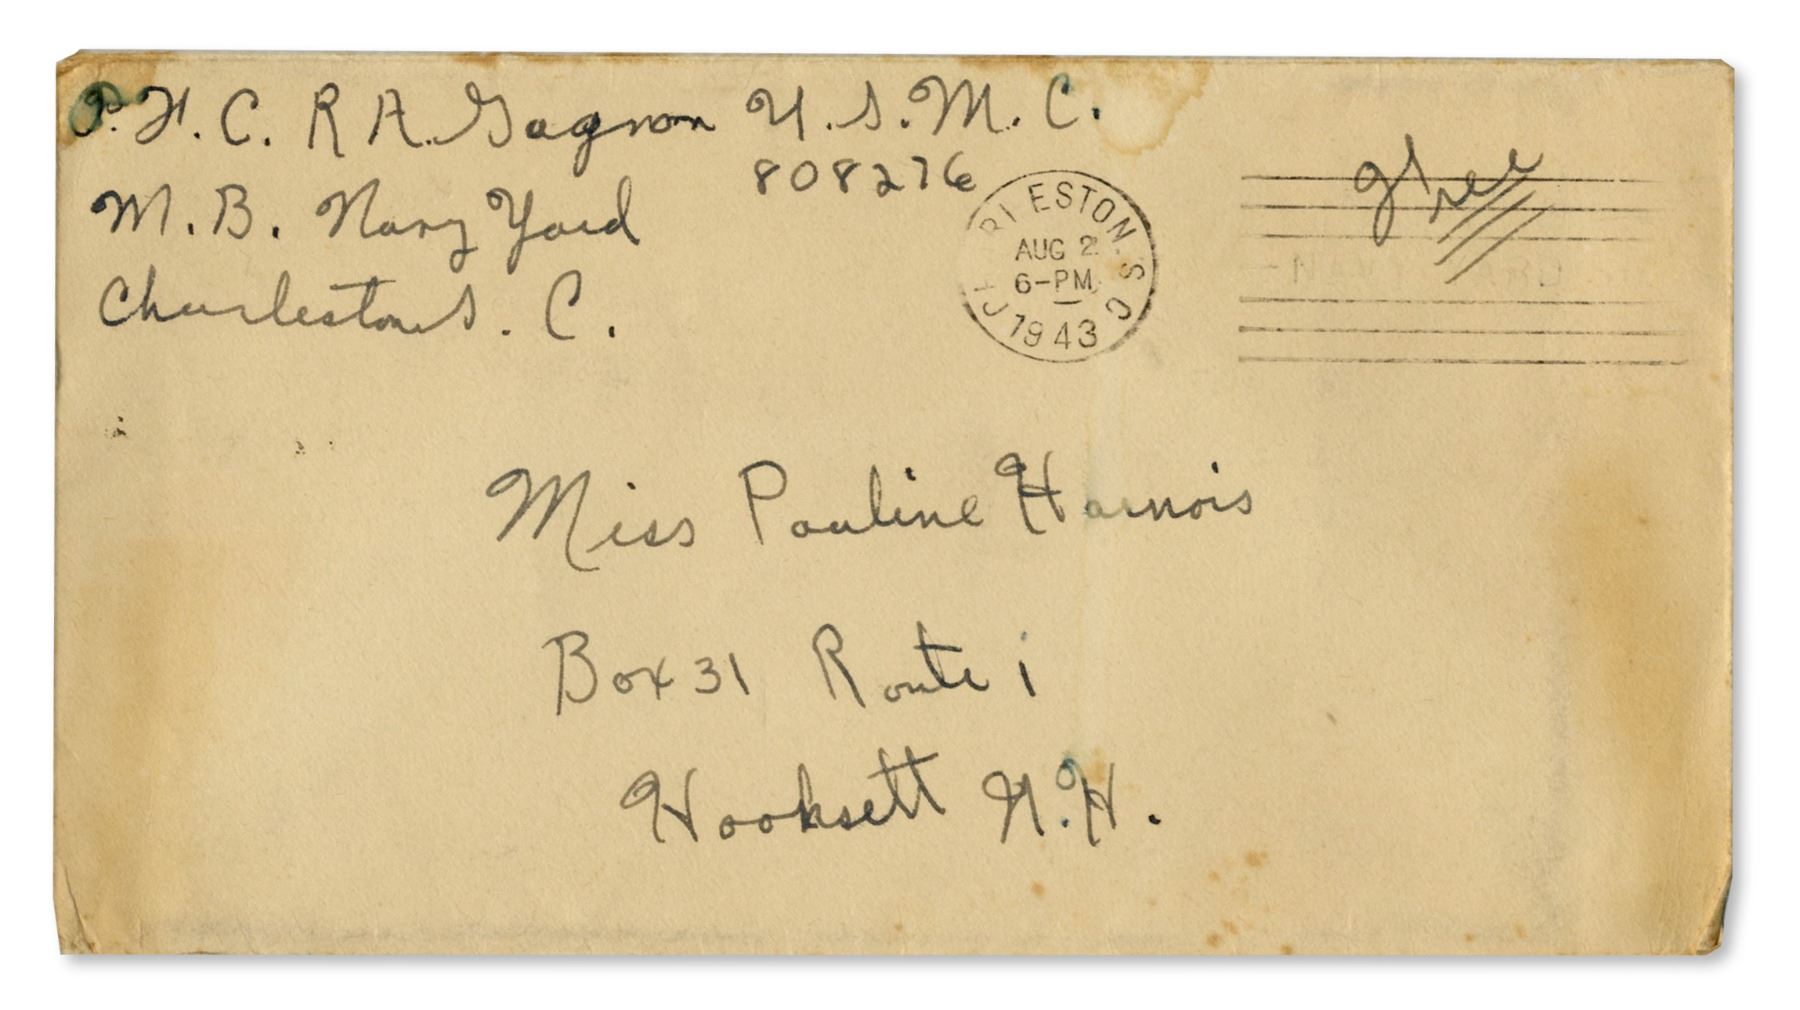 P.F.C. R A. Gagnon U.S.M.C.
808276
M.B. Navy Yard
Charleston S. C.
CHARLESTON. S C
AUG 2
6-PM
1943
Free
Miss Pauline Harnois
Box 31 Route 1
Hooksett N.H.